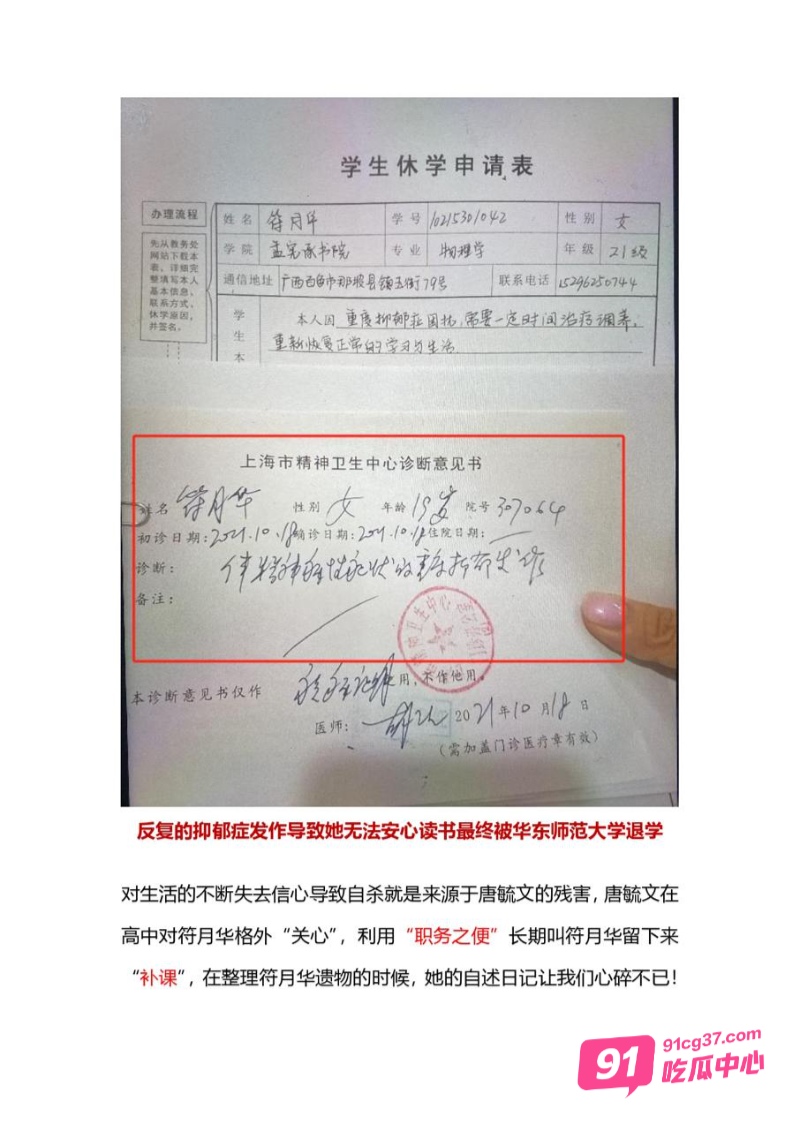 学生休学申请表
办理流程
先从教务处
网站下载本
表、详细完
整填写本人
基本信息、
联系方式、
休学原因,
并签名。
姓名 符月华 学号 10215301042 性别 女
学院 孟宪承书院 专业 物理学 年级 21级
通信地址 广西百色市那坡县镇玉街79号 联系电话 15296250744
学生本
本人因重度抑郁症困扰,需要一定时间治疗调养,
重新恢复正常的学习与生活.
上海市精神卫生中心诊断意见书
姓名 符月华 性别 女 年龄 19岁 院号 307064
初诊日期:2021.10.18 确诊日期:2021.10.18 住院日期:
诊断: 伴精神病性症状的重度抑郁发作
备注:
本诊断意见书仅作 用,不作他用。
医师: 2021年10月18日
(需加盖门诊医疗章有效)
反复的抑郁症发作导致她无法安心读书最终被华东师范大学退学
对生活的不断失去信心导致自杀就是来源于唐毓文的残害,唐毓文在
高中对符月华格外“关心”,利用“职务之便”长期叫符月华留下来
“补课”,在整理符月华遗物的时候,她的自述日记让我们心碎不已!
91 91cg37.com
吃瓜中心